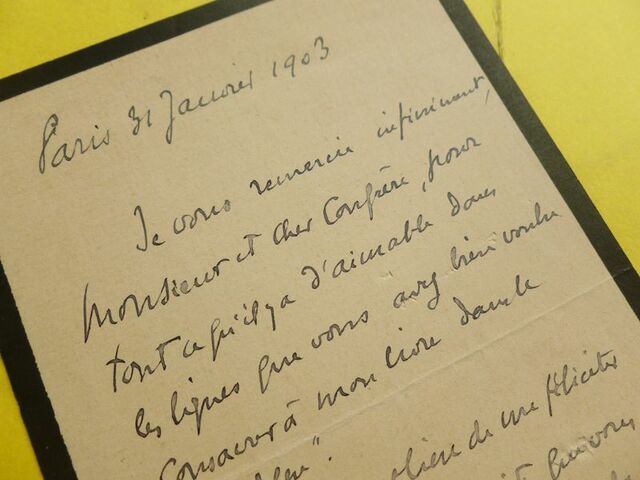 Paris 31 Janvier 1903
Je vous remercie infiniment,
Monsieur et cher Confrère, pour
tout ce qu'il y a d'aimable dans
les lignes que vous avez bien voulu
consacrer à mon livre dans le
de me féliciter
vous